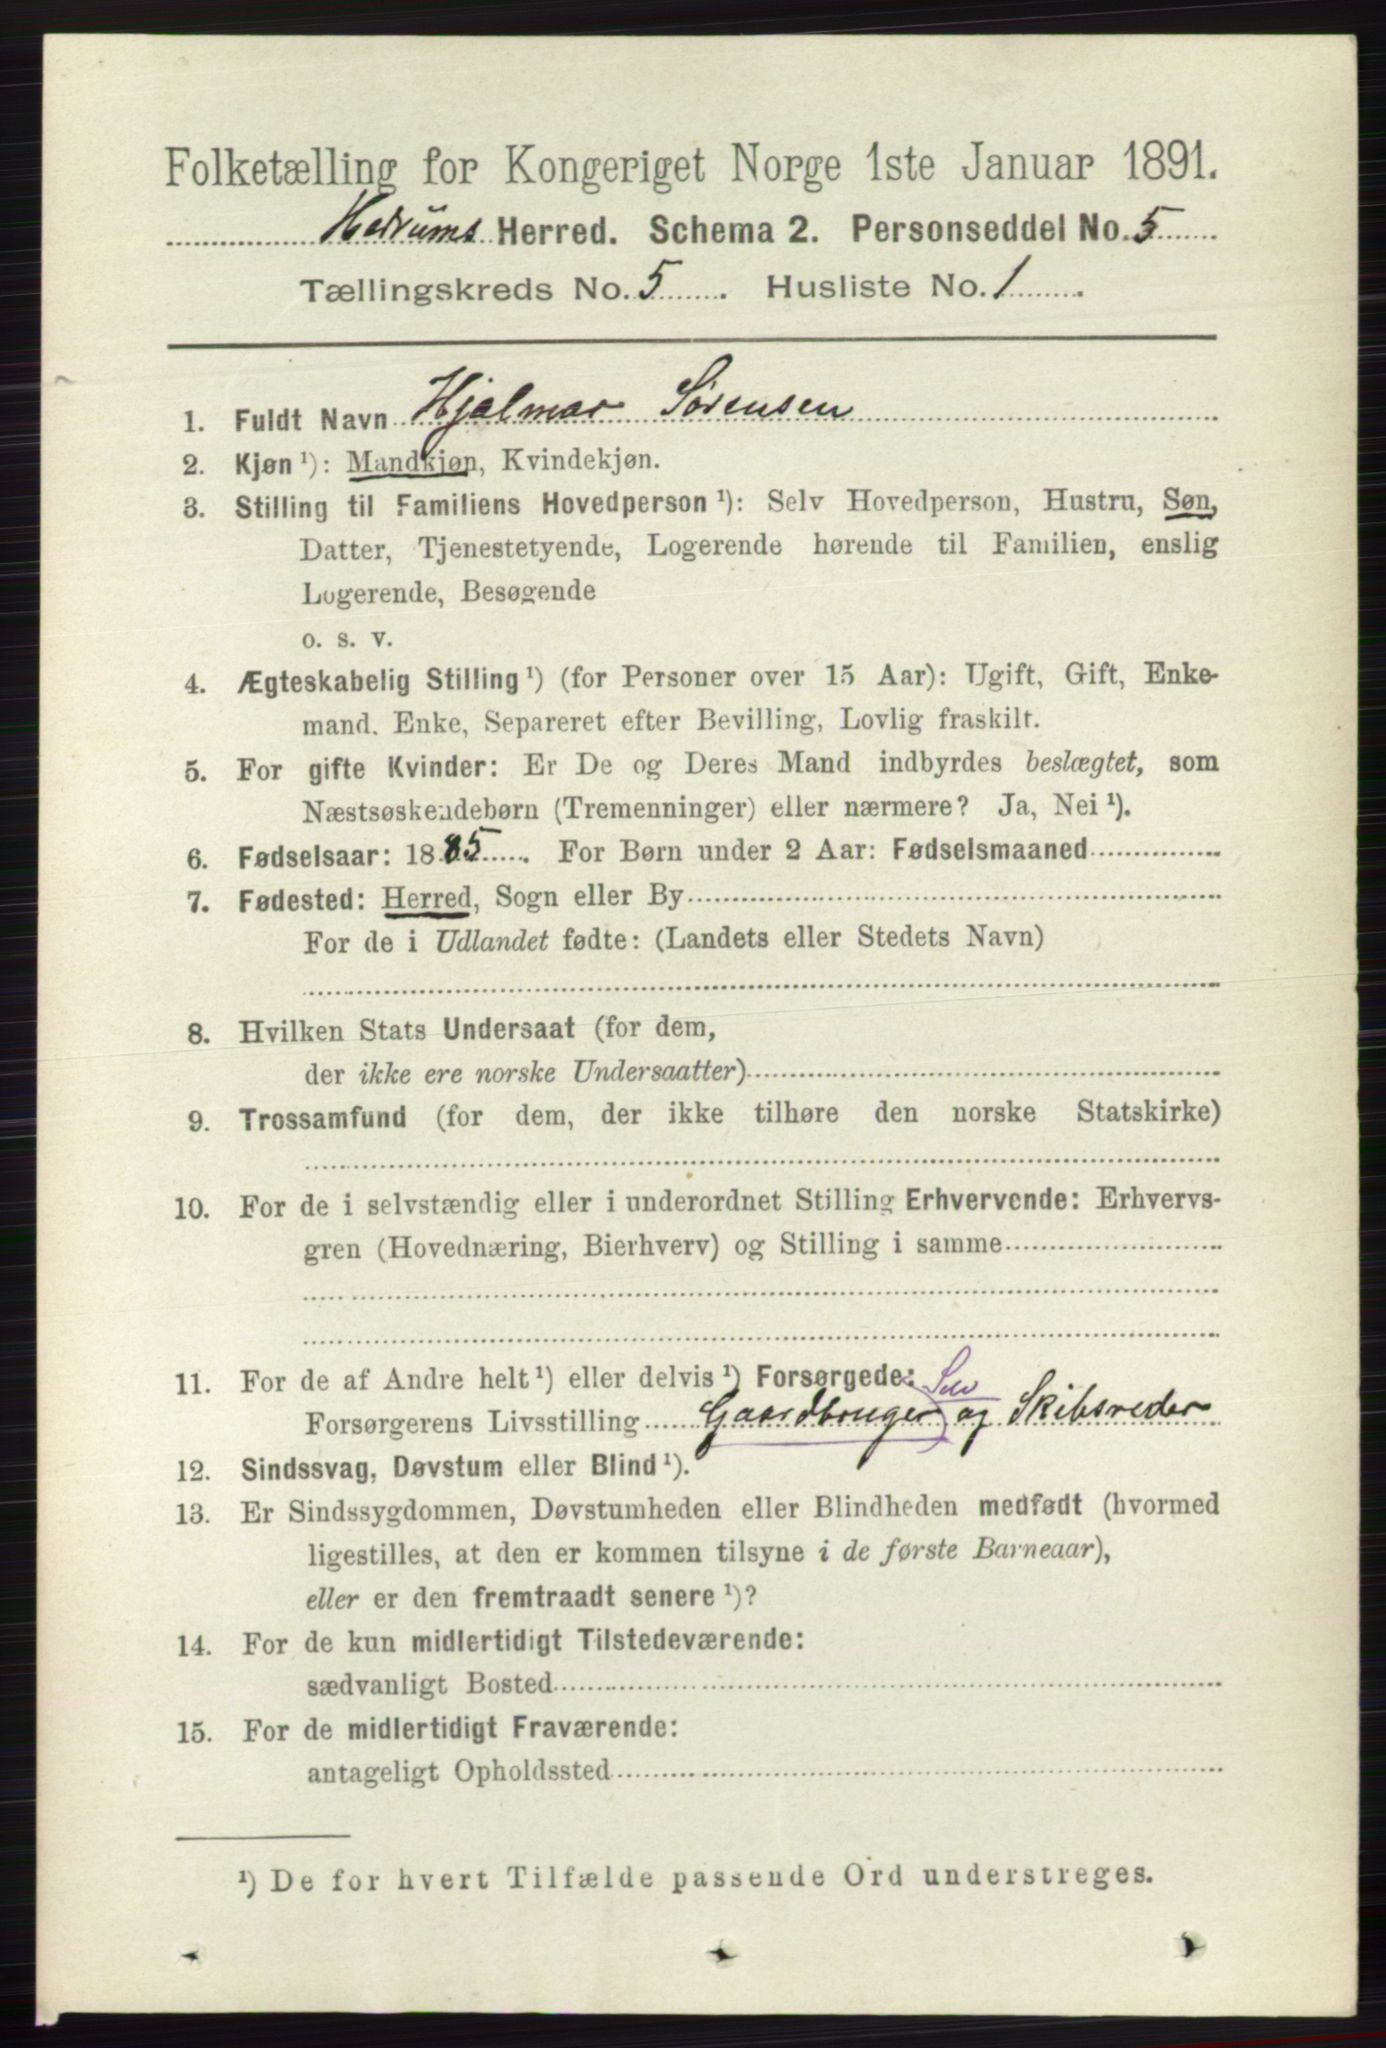 Folketælling for Kongeriget Norge 1ste Januar 1891.
Hedrums Herred. Schema 2. Personseddel No. 5
Tællingskreds No. 5. Husliste No. 1.
1. Fuldt Navn Hjalmar Sørensen
2. Kjøn ¹): Mandkjøn, Kvindekjøn.
3. Stilling til Familiens Hovedperson ¹): Selv Hovedperson, Hustru, Søn,
Datter, Tjenestetyende, Logerende hørende til Familien, enslig
Logerende, Besøgende
o. s. v.
4. Ægteskabelig Stilling ¹) (for Personer over 15 Aar): Ugift, Gift, Enke-
mand, Enke, Separeret efter Bevilling, Lovlig fraskilt.
5. For gifte Kvinder: Er De og Deres Mand indbyrdes beslægtet, som
Næstsøskendebørn (Tremenninger) eller nærmere? Ja, Nei ¹).
6. Fødselsaar: 1885. For Børn under 2 Aar: Fødselsmaaned
7. Fødested: Herred, Sogn eller By
For de i Udlandet fødte: (Landets eller Stedets Navn)
8. Hvilken Stats Undersaat (for dem,
der ikke ere norske Undersaatter)
9. Trossamfund (for dem, der ikke tilhøre den norske Statskirke)
10. For de i selvstændig eller i underordnet Stilling Erhvervende: Erhvervs-
gren (Hovednæring, Bierhverv) og Stilling i samme
11. For de af Andre helt ¹) eller delvis ¹) Forsørgede: Selv
Forsørgerens Livsstilling Gaardbruger og Skibsreder
12. Sindssvag, Døvstum eller Blind ¹).
13. Er Sindssygdommen, Døvstumheden eller Blindheden medfødt (hvormed
ligestilles, at den er kommen tilsyne i de første Barneaar),
eller er den fremtraadt senere ¹)?
14. For de kun midlertidigt Tilstedeværende:
sædvanligt Bosted
15. For de midlertidigt Fraværende:
antageligt Opholdssted
¹) De for hvert Tilfælde passende Ord understreges.